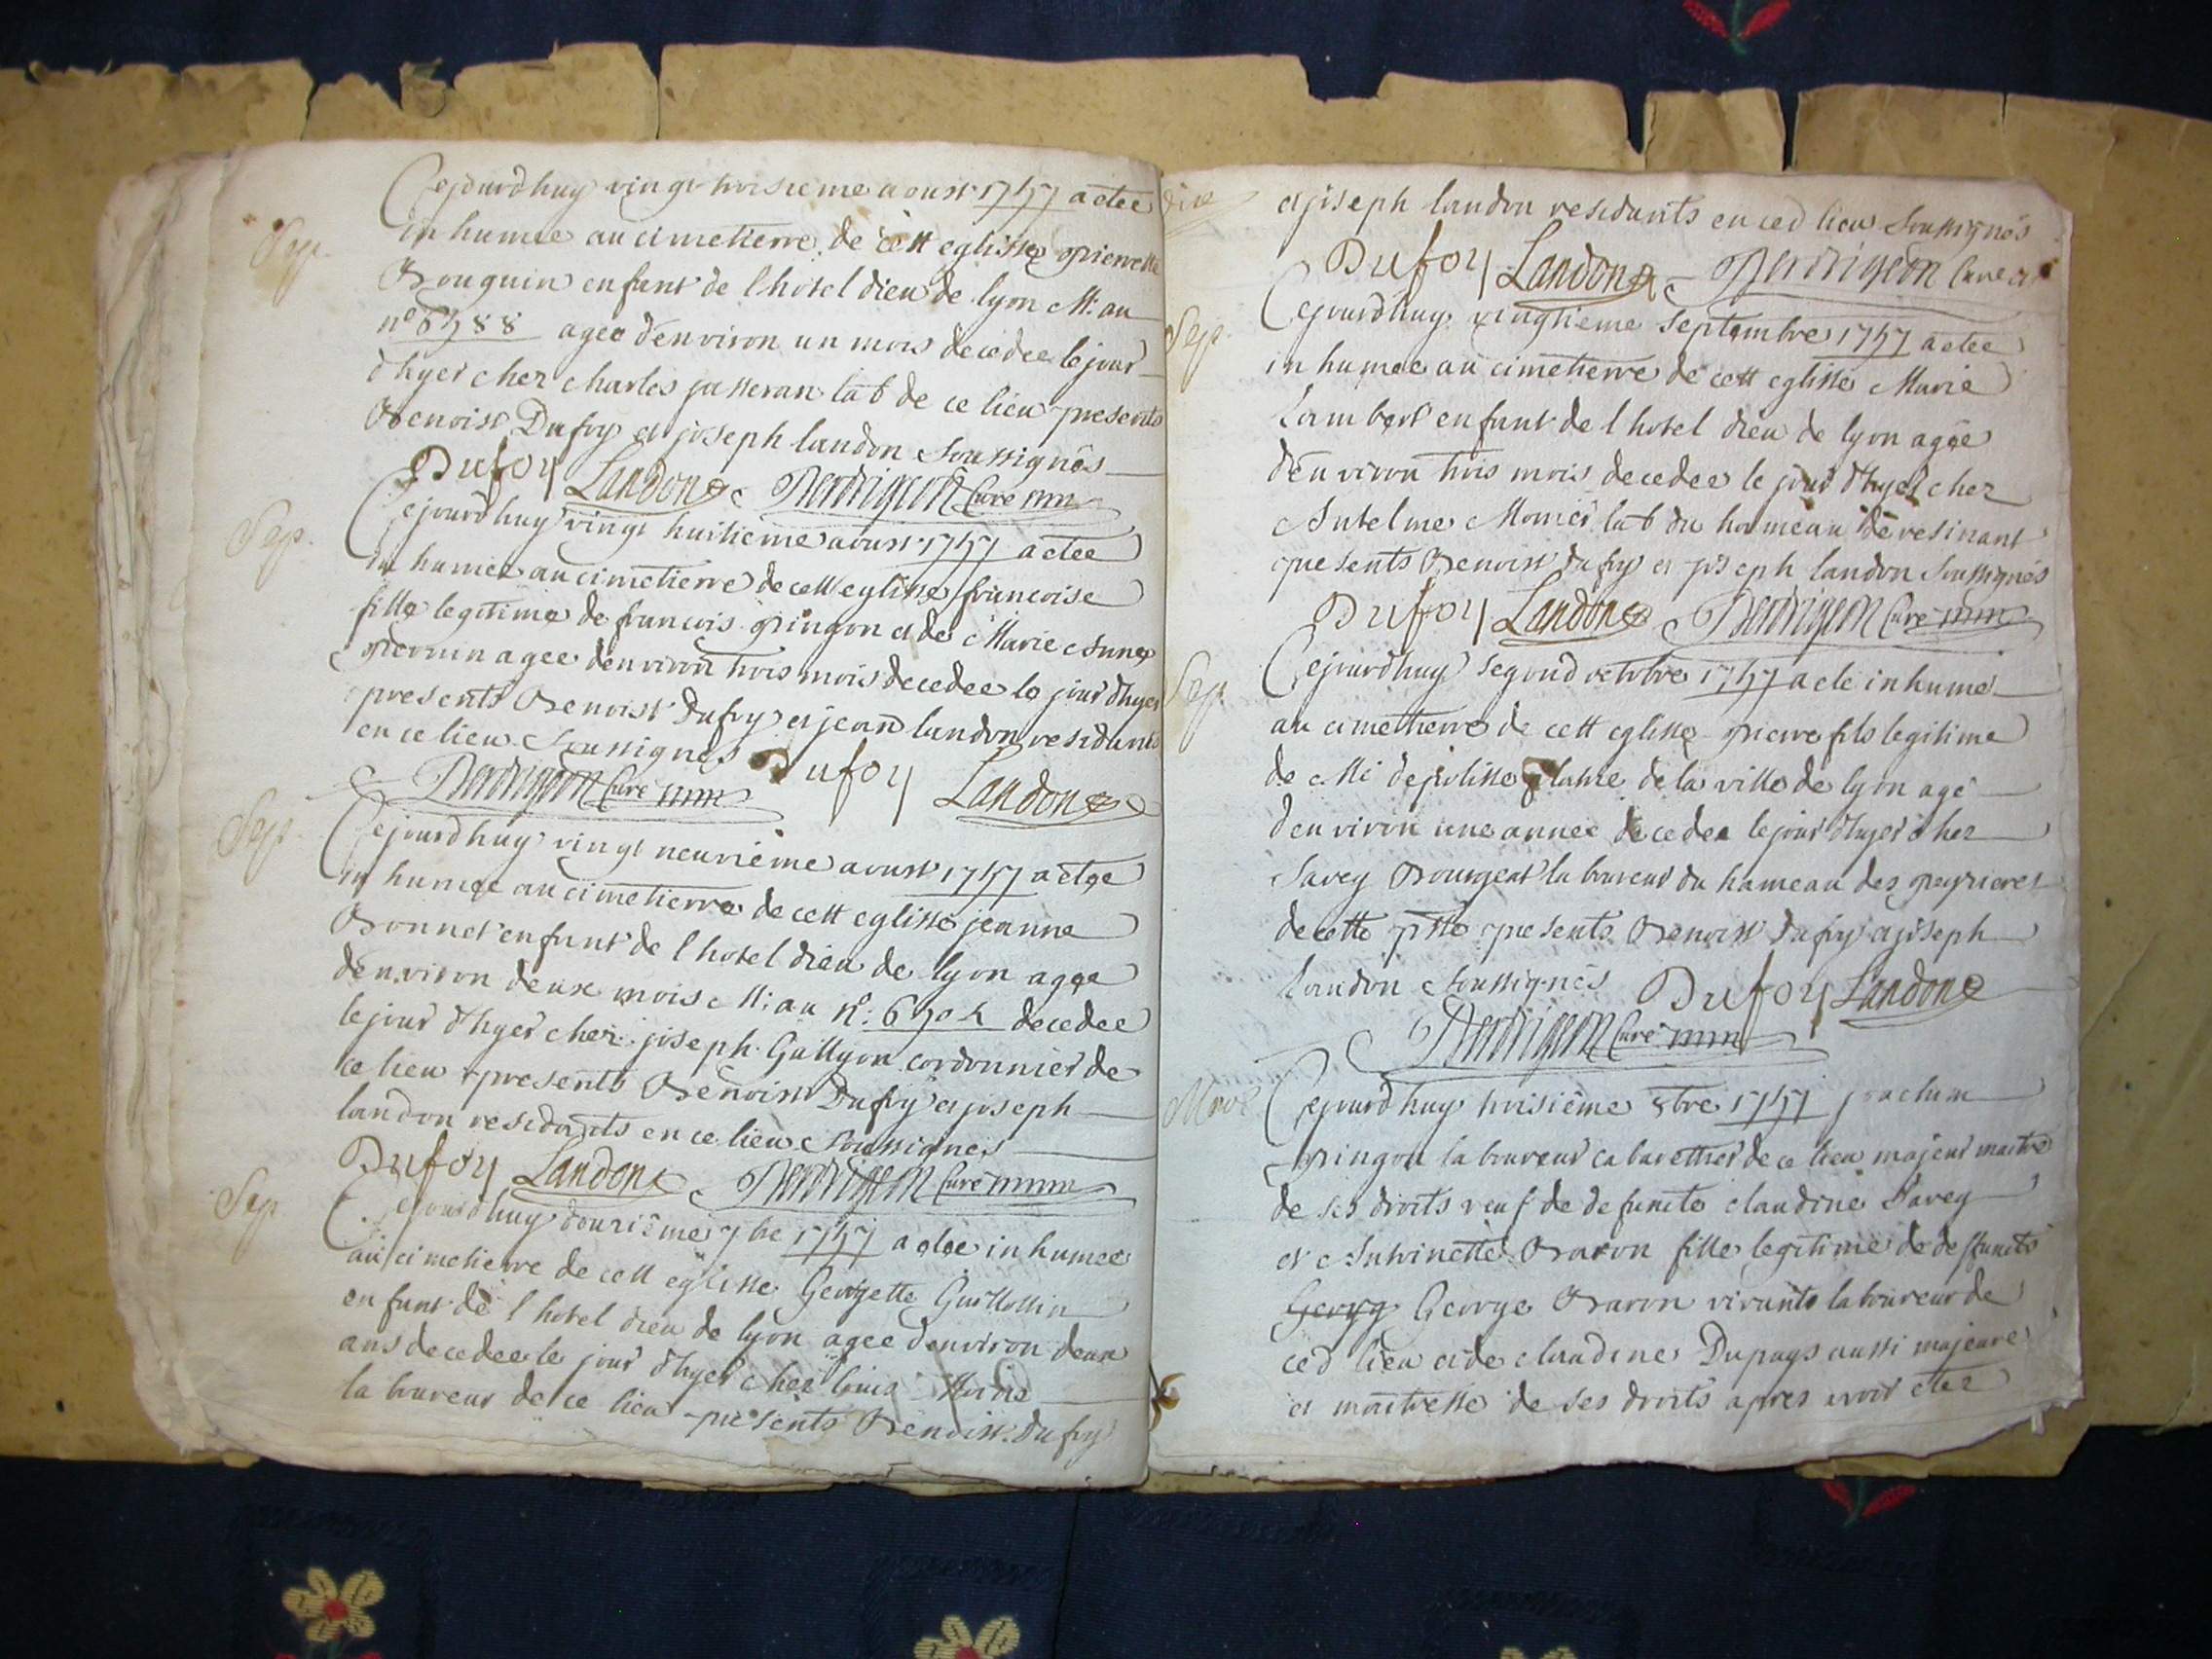 Cejourdhuy vingt troisieme aoust 1757 a etee
Sep.
in humee au cimetierre de cett eglisse pierrette
Bouguin enfant de l hotel dieu de lyon M: au
agee denviron un mois decedee le jour
dhyer chez charles passeran lab de ce lieu presents
Benoist Dufoy et joseph landon soussignés
Dufoy Landon Curé
Sep.
Cejourdhuy vingt huitieme aoust 1757 a etee
in humee au cimetierre de cett eglisse francoise
fille legitime de francois pingon et de Marie Anne
agee denviron trois mois decedee le jour dhyer
presents Benoist Dufoy et jean landon residants
en ce lieu soussignes Dufoy Landon
Curé
Sep.
Cejourdhuy vingt neuvième aoust 1757 a etee
in humee au cimetierre de cett eglisse jeanne
Bonnet enfant de l hotel dieu de lyon agee
denviron deux mois M: au n°: decedee
le jour dhyer chez joseph Gallyon cordonnier de
ce lieu presents Benoist Dufoy et joseph
landon residants en ce lieu soussignes
Dufoy Landon Curé
Sep
Cejourdhuy douzième 7bre 1757 a etee in humee
au cimetierre de cett eglisse Georgette Guillottin
enfant de l hotel dieu de lyon agee denviron deux
ans decedee le jour dhyer chez louis
laboureur de ce lieu presents Benoist Dufoy
et joseph landon residants en ced lieu soussignés
Dufoy Landon Curé
Sep.
Cejourdhuy vingtieme septembre 1757 a etee
in humee au cimetierre de cett eglisse Marie
Lambert enfant de l hotel dieu de lyon agée
denviron trois mois decedee le jour dhyer chez
Antelme Monier lab du hameau de resinant
presents Benoist dufoy et joseph landon soussignés
Dufoy Landon Curé
Sep.
Cejourdhuy segond octobre 1757 a eté inhumé
au cimetierre de cett eglisse pierre fils legitime
de de la ville de lyon agé
denviron une annee decedee le jour dhyer chez
Savey Bourgeat laboureur du hameau des peyrieres
de cette psse presents Benoist Dufoy et joseph
landon soussignés Dufoy Landon
Curé
Cejourdhuy troisième 8bre 1757 joachim
pingon laboureur cabarettier de ce lieu majeur maitre
de ses droits veuf de defuncte claudine Savey
et Antoinette Baron fille legitime de deffuncts
Georg George Baron vivants laboureur de
ced lieu et de claudine Dupuys aussi majeure
et maitresse de ses droits apres avoir etez